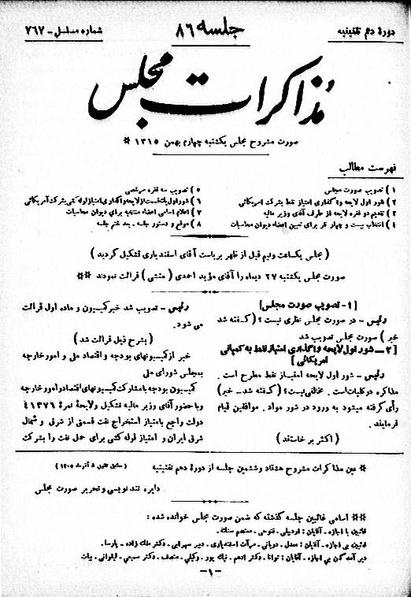 جلسه ۸۶
دورهٔ دهم تقنینیه
شماره مسلسل - ۷۶۷
مذاکرات مجلس
صورت مشروح مجلس یکشنبه چهارم بهمن ۱۳۱۵ *
فهرست مطالب
۱) تصویب صورت مجلس
۲) شور اول لایحه واگذاری امتیاز نفط بشرکت امریکائی
۳) تقدیم دو فقره لایحه از طرف آقای وزیر مالیه
۴) انتخاب بیست و چهار نفر برای تعیین اعضاء دیوان محاسبات
۵) تصویب سه فقره مرخصی
۶) شور اول لایحه واگذاری امتیاز لوله کشی بشرکت آمریکائی
۷) اعلام اسامی اعضاء منتخبه برای دیوان محاسبات
۸) موقع و دستور جلسه بعد ختم جلسه
( مجلس یکساعت ونیم قبل از ظهر بریاست آقای اسفندیاری تشکیل گردید )
صورت مجلس یکشنبه ۲۷ دیماه را آقای مؤید احمدی ( منشی ) قرائت نمودند **
[ ۱- تصویب صورت مجلس ]
رئیس - در صورت مجلس نظری نیست ؟ ( گفته شد
خیر ) صورت مجلس تصویب شد
[ ۲- شور اول لایحه واگذاری امتیاز نفط به کمپانی
امریکائی ]
رئیس - شور اول لایحه امتیاز نفط مطرح است .
مذاکره در کلیات است . مخالفی نیست؟ ( گفته شد - خیر )
رأی گرفته میشود به ورود در شور مواد . موافقین قیام
فرمایند
( اکثر بر خاستند )
رئیس - تصویب شد خبر کمیسیون و ماده اول قرائت
می شود .
( بشرح ذیل قرائت شد )
خبر از کمیسیونهای بودجه و اقتصاد ملی و امور خارجه
بمجلس شورای ملی
کمیسیون بودجه بامشارکت کمیسیونهای اقتصاد و امور خارجه
وباحضور آقای وزیر مالیه تشکیل ولایحهٔ نمرهٔ ۴۱۳۷۶
دولت راجع بامتیاز استخراج نفت قسمتی از شرق و شمال
شرقی ایران و امتیاز لوله کشی برای حمل نفت را بشرکت
** عین مذاکرات مشروح هشتاد وششمین جلسه از دورهٔ دهم تقنینیه
دایره تند نویسی و تحریر صورت مجلس
** اسامی غائبین جلسه گذشته که ضمن صورت مجلس خوانده شده :
غائبین با اجازه - آقایان :
غائبین بی اجازه - آقایان :
دیر آمدگان بی اجازه - آقایان :
- ۱ -